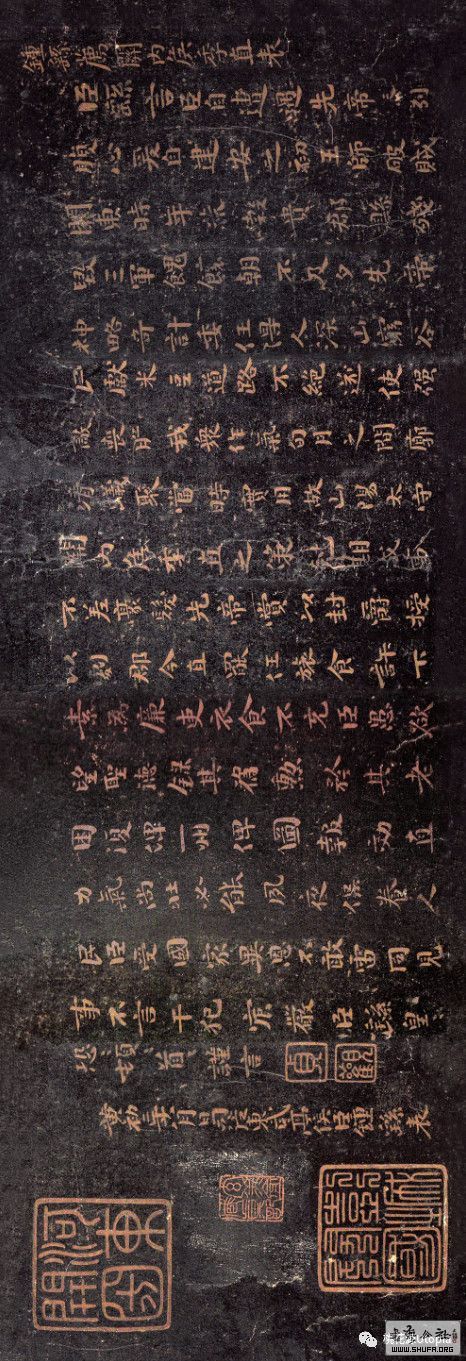 鍾繇薦關內侯季直表
臣繇言臣自遭遇先帝忝列
腹心爰自建安之初王師破賊
關東時年荒穀貴郡縣殘
毀三軍餽饟朝不及夕先帝
神略奇計委任得人深山窮谷
民獻米豆道路不絕遂使強
敵喪膽我衆作氣旬月之間廓
清蟻聚當時實用故山陽太守
關內侯季直之策剋期成事
不差豪髮先帝賞以封爵授
以劇郡今直罷任旅食許下
素爲廉吏衣食不充臣愚欲
望聖德錄其舊勳矜其老
困復俾一州俾圖報效直
力氣尚壯必能夙夜保養人
民臣受國家異恩不敢雷同見
事不言干犯宸嚴臣繇皇〻
恐〻頓〻首〻謹言
貞觀
黃初二年八月日司徒東武亭侯臣鍾繇表
WWW.SHUFA.ORG